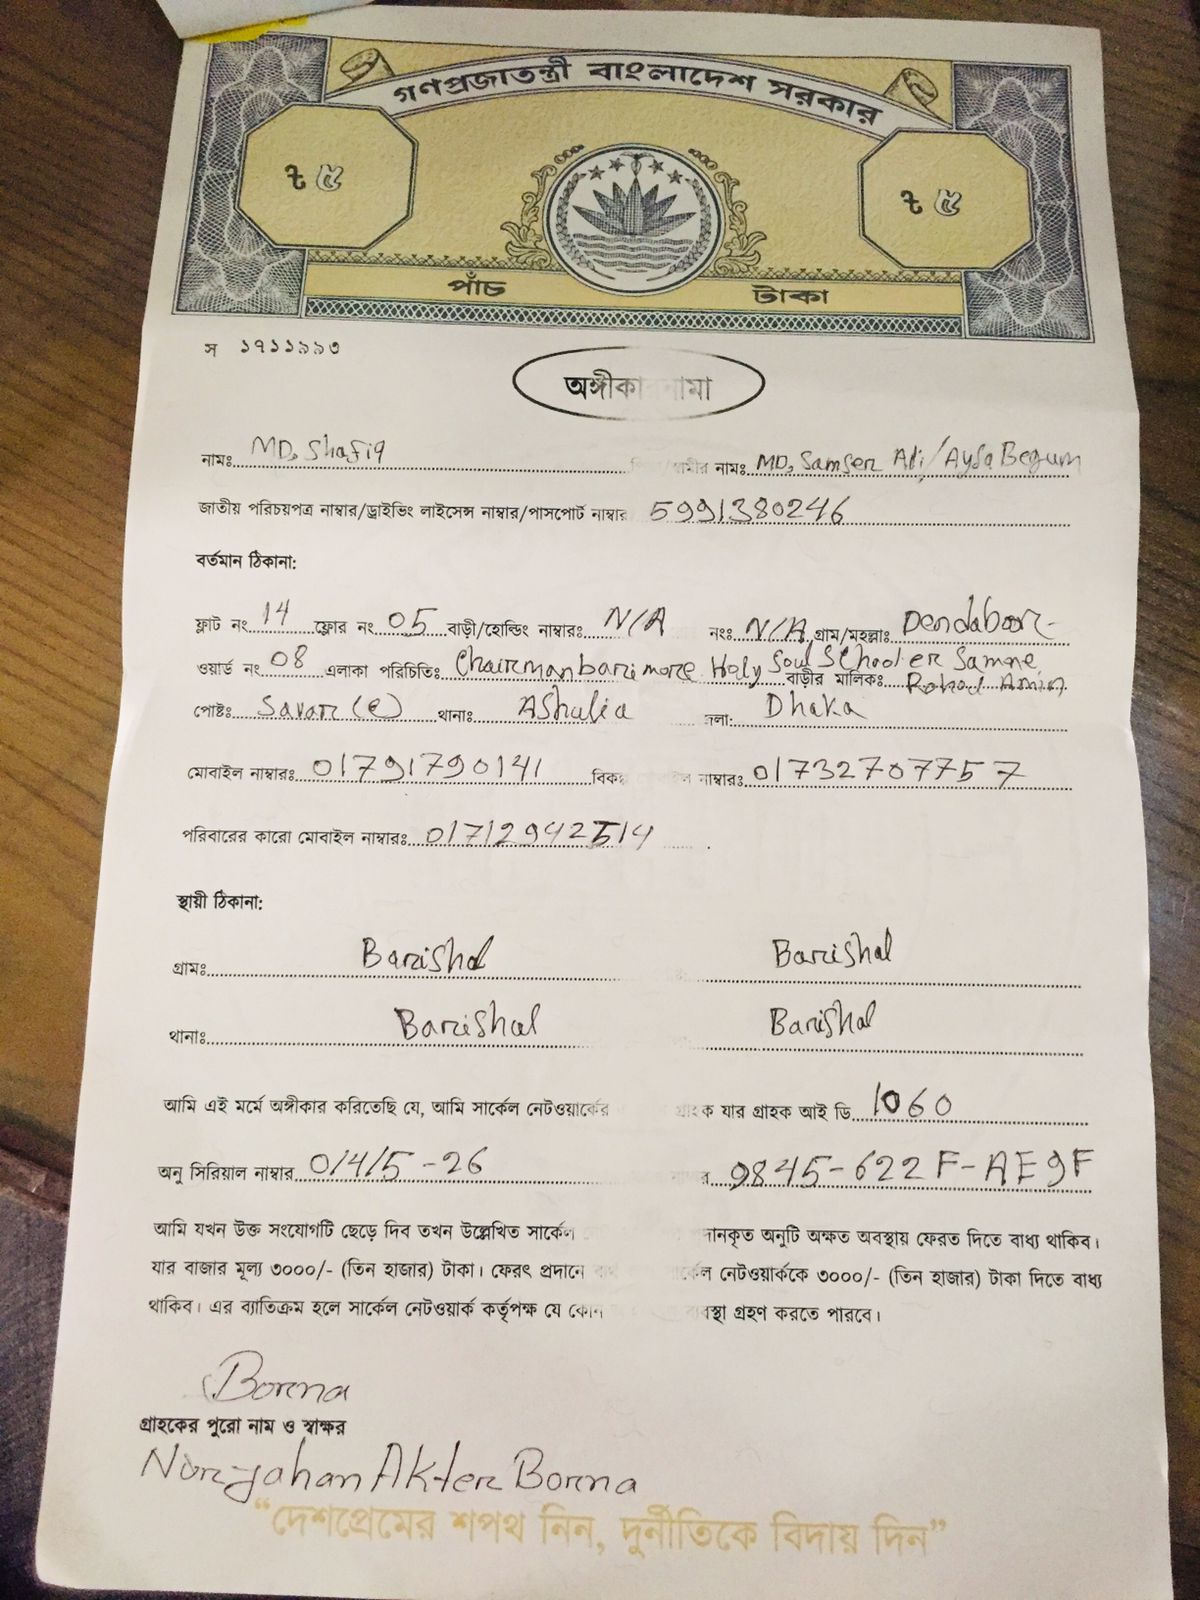 গণপ্রজাতন্ত্রী বাংলাদেশ সরকার
৳ ৫ ৳ ৫
পাঁচ টাকা
স ১৭১১৯৯৩
অঙ্গীকারনামা
নামঃ MD, Shafiq নামঃ MD, Samser Ali/Aysa Begum
জাতীয় পরিচয়পত্র নাম্বার/ড্রাইভিং লাইসেন্স নাম্বার/পাসপোর্ট নাম্বার 5991380246
বর্তমান ঠিকানা:
ফ্লাট নং 14 ফ্লোর নং 05 বাড়ী/হোল্ডিং নাম্বারঃ N/A নংঃ N/A গ্রাম/মহল্লাঃ Dendabor
ওয়ার্ড নং 08 এলাকা পরিচিতিঃ Chairmanbari more Holy Soul School er Samne
বাড়ীর মালিকঃ Amin
পোষ্টঃ Savar (c) থানাঃ AShulia জেলা: Dhaka
মোবাইল নাম্বারঃ 01791790141 নাম্বারঃ 01732707757
পরিবারের কারো মোবাইল নাম্বারঃ 01712942514
স্থায়ী ঠিকানা:
গ্রামঃ Barishal Barishal
থানাঃ Barishal Barishal
আমি এই মর্মে অঙ্গীকার করিতেছি যে, আমি সার্কেল নেটওয়ার্কের গ্রাহক যার গ্রাহক আই ডি 1060
অনু সিরিয়াল নাম্বার 01415-26 9845-622F-AE9F
আমি যখন উক্ত সংযোগটি ছেড়ে দিব তখন উল্লেখিত সার্কেল অনুটি অক্ষত অবস্থায় ফেরত দিতে বাধ্য থাকিব।
যার বাজার মূল্য ৩০০০/- (তিন হাজার) টাকা। ফেরৎ প্রদানে সার্কেল নেটওয়ার্ককে ৩০০০/- (তিন হাজার) টাকা দিতে বাধ্য
থাকিব। এর ব্যাতিক্রম হলে সার্কেল নেটওয়ার্ক কর্তৃপক্ষ যে কোন ব্যবস্থা গ্রহণ করতে পারবে।
Borna
গ্রাহকের পুরো নাম ও স্বাক্ষর
Nurjahan Akter Borna
“দেশপ্রেমের শপথ নিন, দুর্নীতিকে বিদায় দিন”